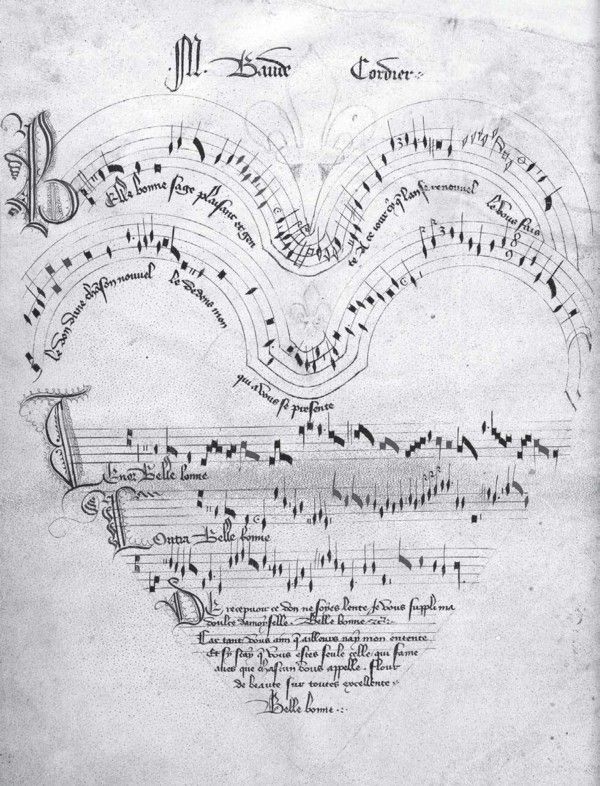 M. Baude Cordier
Belle bonne sage plaisant et gen
te A ce jour cy que l'an se renouvel
le Vous fais
le don d'une chanson nouvel
le Dedens mon
qui a vous se presente
Tenor Belle bonne
Contra Belle bonne
De recepvoir ce don ne soyes lente Je vous suppli ma
doulce damoyselle. Belle bonne
Car tant vous aim qu'ailleurs n'ay mon entente
Et sy scay que vous estes seule celle qui fame
aves que chascun vous appelle. Flour
de beaute sur toutes excellente
Belle bonne